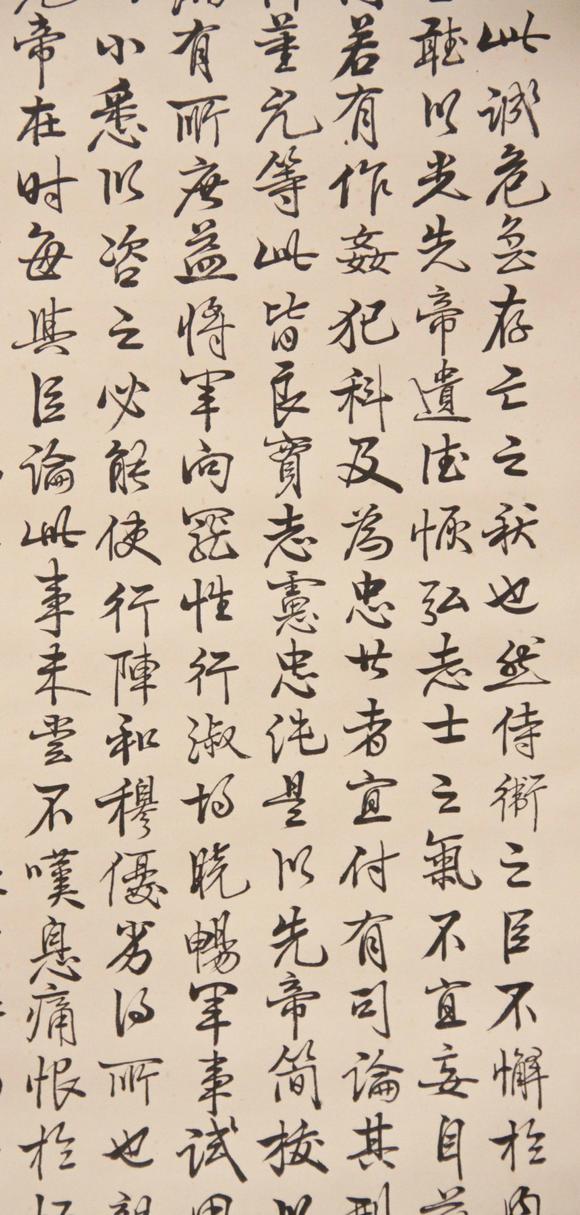 此誠危急存亡之秋也然侍衛之臣不懈於內
聽以光先帝遺德恢弘志士之氣不宜妄自
若有作姦犯科及為忠廿者宜付有司論其刑
董允等此皆良實志慮忠純是以先帝簡拔以
有所廣益將軍向寵性行淑均曉暢軍事試用
小悉以咨之必能使行陣和穆優劣得所也親
帝在时每與臣論此事未雲不嘆息痛恨於桓